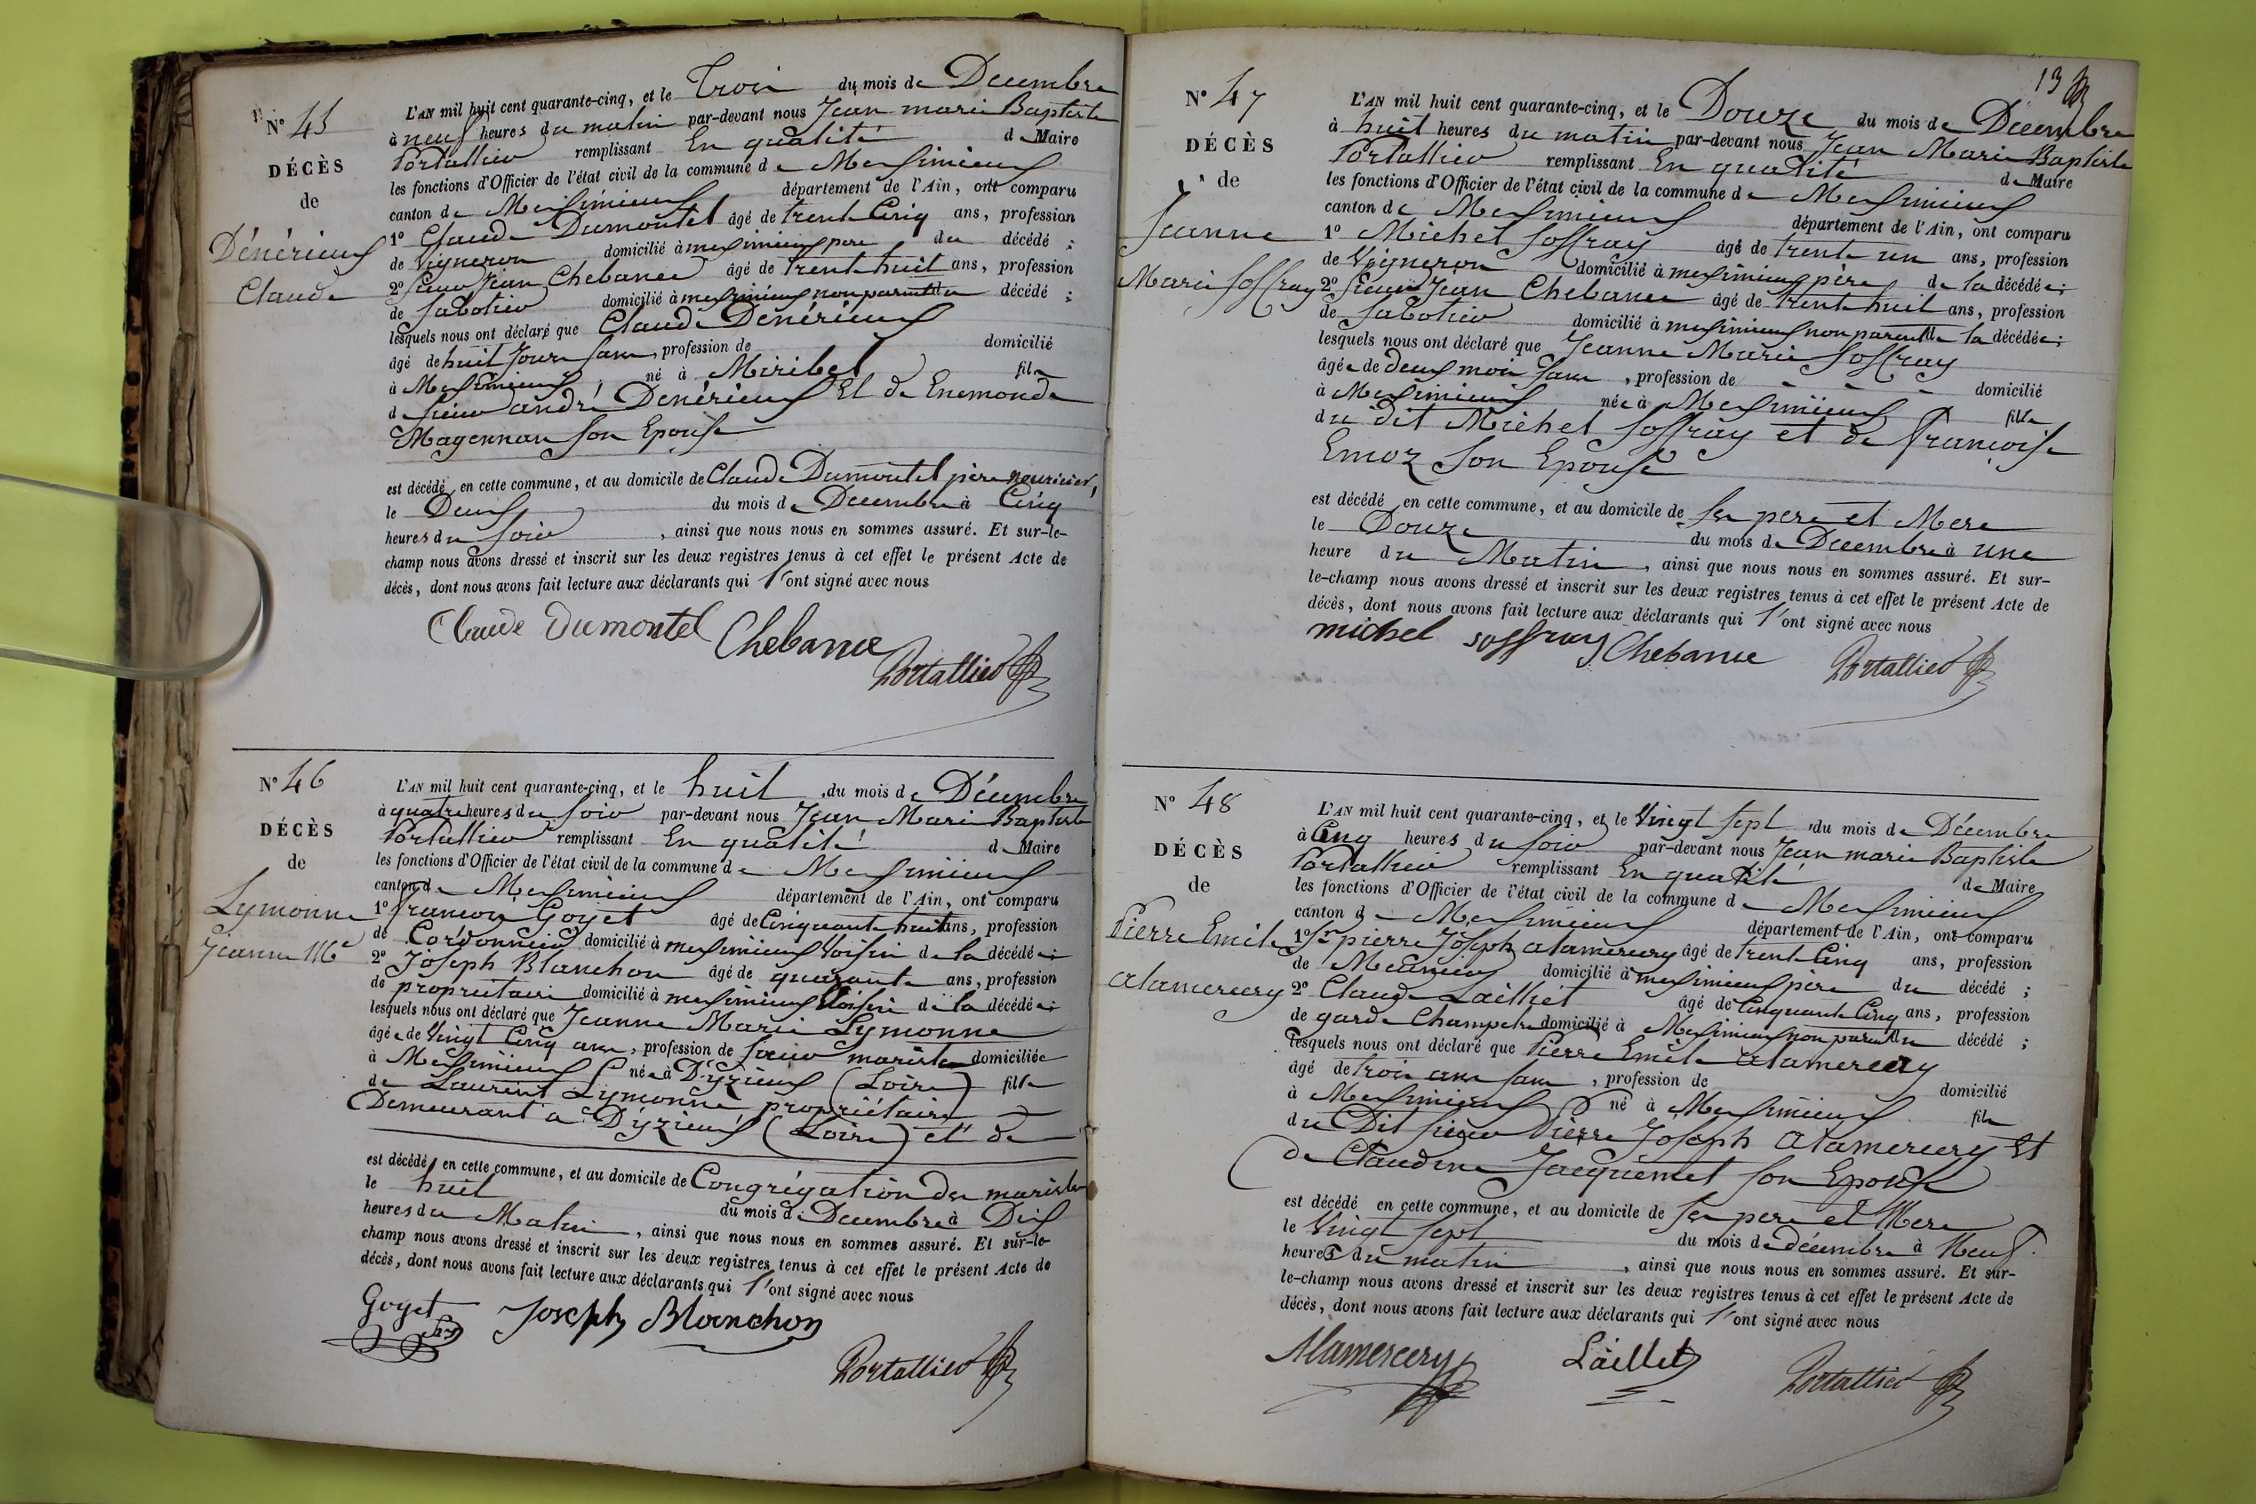 N° 45
DÉCÈS
de
Dénérieux
Claude
L'AN mil huit cent quarante-cinq, et le Trois du mois de Decembre
à neuf heures du matin par-devant nous Jean marie Baptiste
Portallier remplissant En qualité de Maire
les fonctions d'Officier de l'état civil de la commune de Meximieux
canton de Meximieux département de l'Ain, ont comparu
1° Claude Dumontel âgé de trente Cinq ans, profession
de Vigneron domicilié à meximieux père du décédé ;
2° Sieur Jean Chebance âgé de trente huit ans, profession
de Sabotier domicilié à meximieux non parent du décédé ;
lesquels nous ont déclaré que Claude Dénérieux
âgé de huit Jours Sans , profession de domicilié
à Meximieux né à Miribel fils
de Sieur andré Dénérieux Et de Enemonde
Magennan Son Epouse
est décédé en cette commune, et au domicile de Claude Dumontel père nouricier,
le Deux du mois de Decembre à Cinq
heures du Soir , ainsi que nous nous en sommes assuré. Et sur-le-
champ nous avons dressé et inscrit sur les deux registres tenus à cet effet le présent Acte de
décès, dont nous avons fait lecture aux déclarants qui l'ont signé avec nous
Claude Dumontel Chebance
Portallier
N° 46
DÉCÈS
de
Lymonne
Jeanne Me
L'AN mil huit cent quarante-cinq, et le huit du mois de Décembre
à quatre heures du Soir par-devant nous Jean Marie Baptiste
Portallier remplissant En qualité de Maire
les fonctions d'Officier de l'état civil de la commune de Meximieux
canton de Meximieux département de l'Ain, ont comparu
1° francois Goyet âgé de Cinquante huit ans, profession
de Cordonnier domicilié à meximieux Voisin de la décédée ;
2° Joseph Blanchon âgé de quarante ans, profession
de propriétaire domicilié à meximieux Voisin de la décédée ;
lesquels nous ont déclaré que Jeanne Marie Lymonne
âgée de Vingt Cinq ans , profession de Soeur mariste domiciliée
à Meximieux née à D'yzieux (Loire) fille
de Laurent Lymonne propriétaire
Demeurant a D'yzieux (Loire) et de
est décédé en cette commune, et au domicile de Congrégation des maristes
le huit du mois de Decembre à Dix
heures du Matin , ainsi que nous nous en sommes assuré. Et sur-le-
champ nous avons dressé et inscrit sur les deux registres tenus à cet effet le présent Acte de
décès, dont nous avons fait lecture aux déclarants qui l'ont signé avec nous
Goyet Joseph Blanchon
Portallier
13
N° 47
DÉCÈS
de
Jeanne
Marie Soffray
L'AN mil huit cent quarante-cinq, et le Douze du mois de Décembre
à huit heures du matin par-devant nous Jean Marie Baptiste
Portallier remplissant En qualité de Maire
les fonctions d'Officier de l'état civil de la commune de Meximieux
canton de Meximieux département de l'Ain, ont comparu
1° Michel Soffray âgé de trente un ans, profession
de Vigneron domicilié à meximieux père de la décédée ;
2° Sieur Jean Chebance âgé de trente huit ans, profession
de Sabotier domicilié à meximieux non parent de la décédée ;
lesquels nous ont déclaré que Jeanne Marie Soffray
âgée de deux mois Sans , profession de domicilié
à Meximieux née à Meximieux fille
du dit Michel Soffray et de francoise
Emoz Son Epouse
est décédé en cette commune, et au domicile de Ses pere et Mere
le Douze du mois de Decembre à une
heure du Matin , ainsi que nous nous en sommes assuré. Et sur-
le-champ nous avons dressé et inscrit sur les deux registres tenus à cet effet le présent Acte de
décès, dont nous avons fait lecture aux déclarants qui l'ont signé avec nous
michel soffray Chebance Portallier
N° 48
DÉCÈS
de
Pierre Emile
alamercery
L'AN mil huit cent quarante-cinq, et le Vingt Sept du mois de Décembre
à Cinq heures du Soir par-devant nous Jean marie Baptiste
Portallier remplissant En qualité de Maire
les fonctions d'Officier de l'état civil de la commune de Meximieux
canton de Meximieux département de l'Ain, ont comparu
1° Sr pierre Joseph alamercery âgé de trente Cinq ans, profession
de Mecanicien domicilié à meximieux père du décédé ;
2° Claude Lailliet âgé de Cinquante Cinq ans, profession
de garde Champetre domicilié à Meximieux non parent du décédé ;
lesquels nous ont déclaré que Pierre Emile alamercery
âgé de trois ans Sans , profession de domicilié
à Meximieux né à Meximieux fils
du Dit Sieur Pierre Joseph alamercery Et
de Claudine Jacquemet Son Epouse
est décédé en cette commune, et au domicile de Ses pere et Mere
le Vingt Sept du mois de décembre à Neuf
heures du matin , ainsi que nous nous en sommes assuré. Et sur-
le-champ nous avons dressé et inscrit sur les deux registres tenus à cet effet le présent Acte de
décès, dont nous avons fait lecture aux déclarants qui l'ont signé avec nous
Alamercery Laillet Portallier